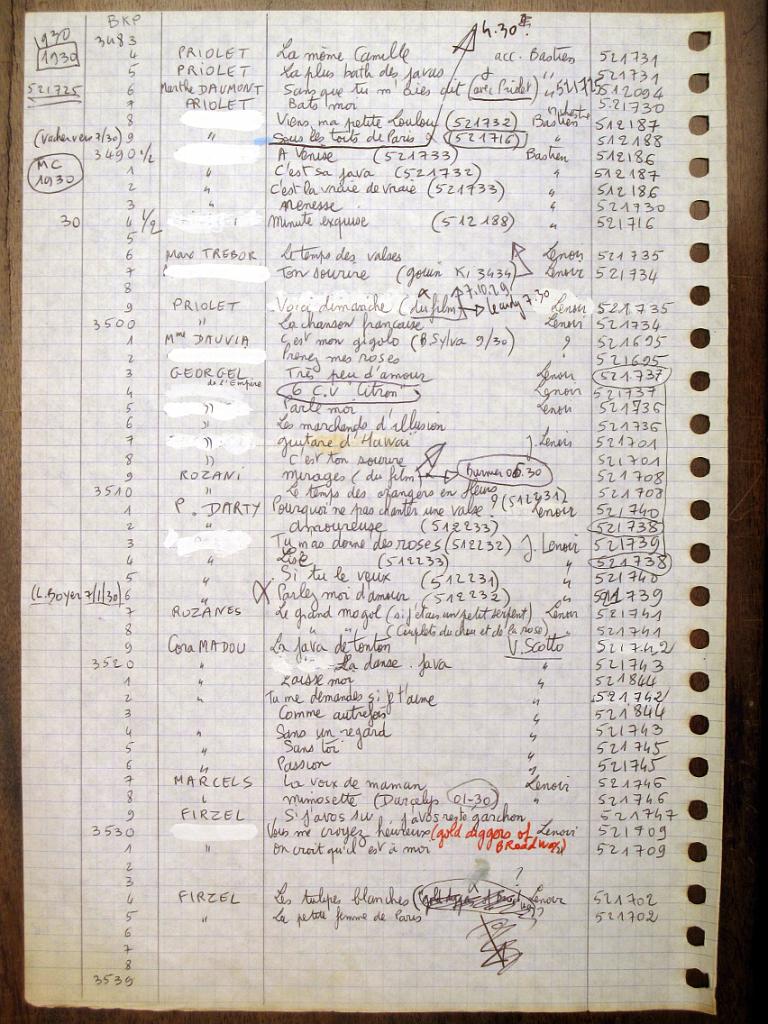 BKP
1930 3483 4.30
1930 4 PRIOLET La môme Camille acc. Bastien 521731
5 PRIOLET La plus bath des javas " 521731
521725 6 Marthe DAUMONT Sans que tu m'aies dit (avec Priolet) " 521725 512094
7 PRIOLET Bats moi 521730
8 Viens, ma petite Loulou (521732) Bastien 512187
(Vacher vers 7/30) 9 " Sous les toits de Paris (521716) " 512188
3490 1/2 A Venise (521733) Bastien 512186
MC 1930 1 " C'est sa java (521732) " 512187
2 " C'est la vraie de vraie (521733) " 512186
3 " " 521730
30 4 1/2 Minute exquise (512188) " 521716
5
6 Marc TREBOR Le temps des valses Lenoir 521735
7 Ton sourire (Gouin K, 3434) Lenoir 521734
8 7.10.29
9 PRIOLET Voici dimanche (du film) 7.30 Lenoir 521735
3500 " La chanson française Lenoir 521734
1 Mme DAUVIA C'est mon gigolo (B. Sylva 9/30) ? 521695
2 Prenez mes roses 521695
3 GEORGEL de l'Empire Très peu d'amour Lenoir 521737
4 6 C.V "Citron" Lenoir 521737
5 " Parle moi Lenoir 521736
6 " Les marchands d'illusion 521736
7 " guitare d'Hawaï J. Lenoir 521701
8 " C'est ton sourire 521701
9 ROZANI Mirages (du film) 06.30 521708
3510 " Le temps des orangers en fleurs 521708
1 P. DARTY Pourquoi ne pas chanter une valse ? (512231) Lenoir 521740
2 " Amoureuse (512233) " 521738
3 Tu m'as donné des roses (512232) J. Lenoir 521739
4 " Lise (512233) " 521738
5 " Si tu le veux (512231) " 521740
(L. Boyer 7/1/30) 6 " X Parlez moi d'amour (512232) " 521739
7 ROZANES Le grand mogol (si j'étais un petit serpent) Lenoir 521741
8 " " (Couplets du chou et de la rose) " 521741
9 Cora MADOU La java de tonton V. Scotto 521742
3520 " La danse java " 521743
1 " Laisse moi " 521844
2 " Tu me demandes si j't'aime " 521742
3 Comme autrefois " 521844
4 " Sans un regard " 521743
5 " Sans toi " 521745
6 " Passion " 521745
7 MARCELS La voix de maman Lenoir 521746
8 " Mimosette (Darcelys 01-30) " 521746
9 FIRZEL Si j'avos su j'avos resté garchon 521747
3530 Vous me croyez heureux (gold diggers of Broadway) Lenoir 521709
1 " On croit qu'il est à moi " 521709
2
3 ?
4 FIRZEL Les tulipes blanches Lenoir 521702
5 " La petite femme de Paris ? 521702
6
7
8
3539